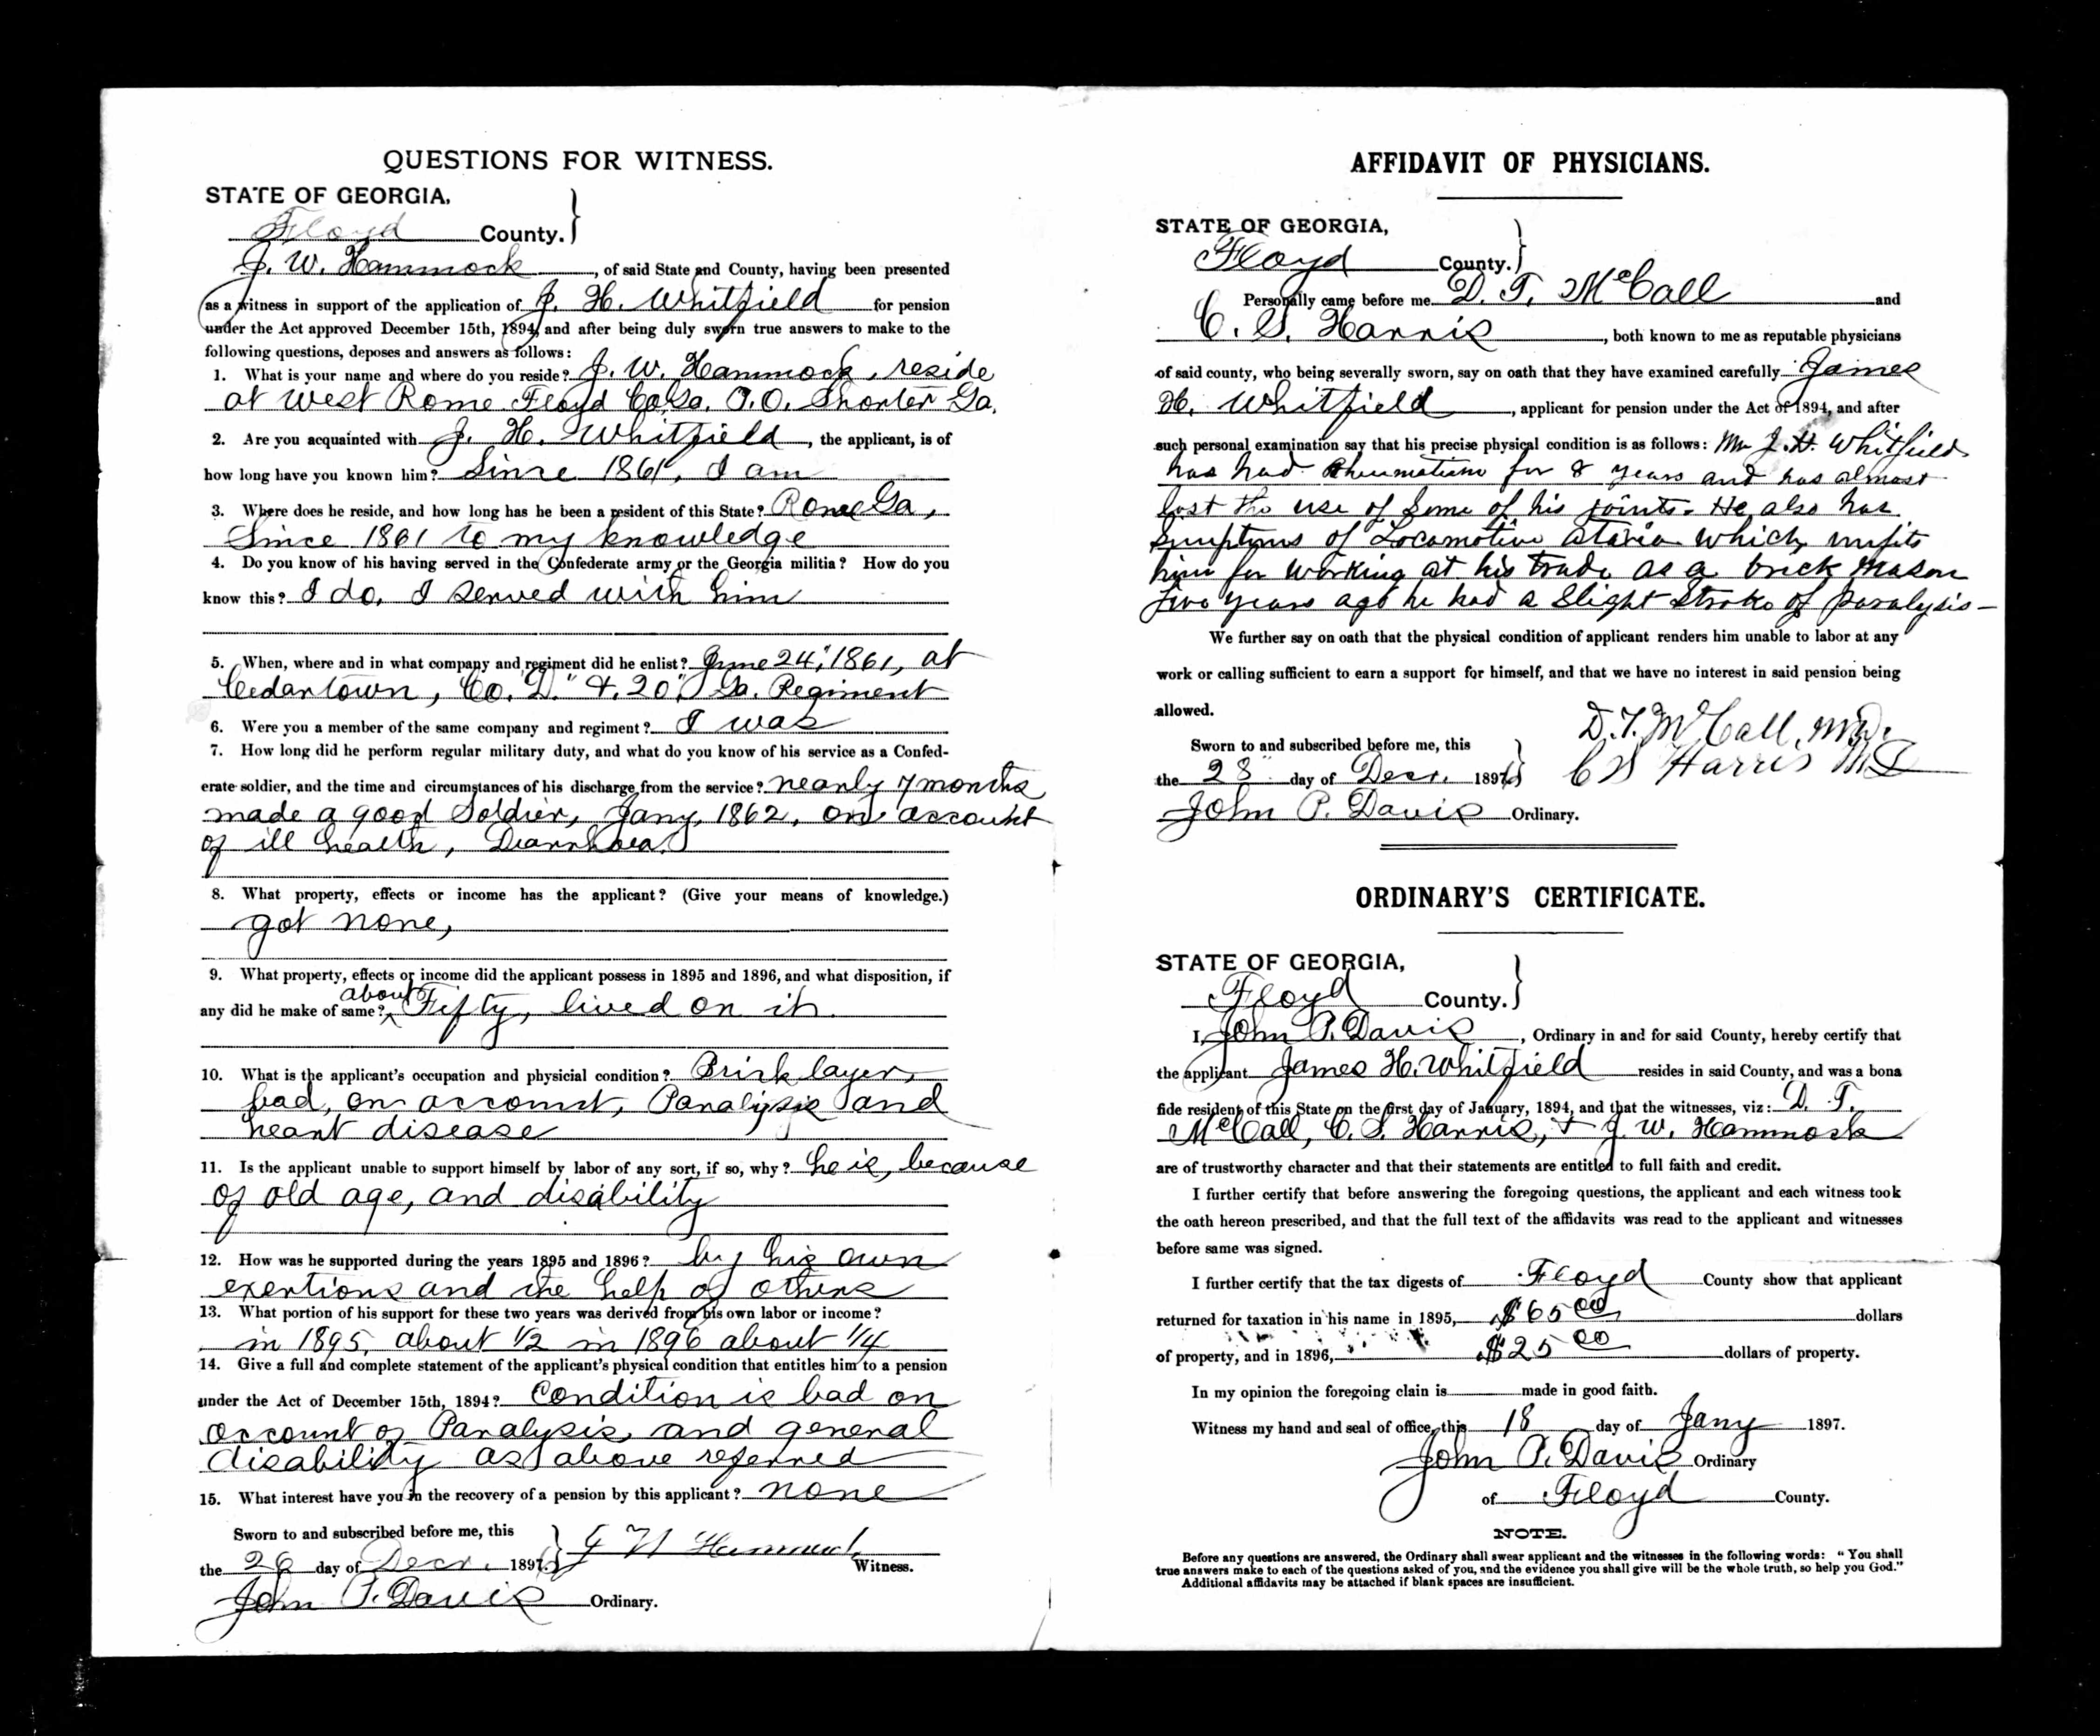 QUESTIONS FOR WITNESS.
STATE OF GEORGIA,
Floyd County.
J. W. Hammock, of said State and County, having been presented
as a witness in support of the application of J. H. Whitfield for pension
under the Act approved December 15th, 1894, and after being duly sworn true answers to make to the
following questions, deposes and answers as follows:
1. What is your name and where do you reside? J. W. Hammock, reside
at West Rome Floyd Co Ga. P.O. Shorter Ga.
2. Are you acquainted with J. H. Whitfield, the applicant, is of
how long have you known him? Since 1861, I am
3. Where does he reside, and how long has he been a resident of this State? Rome Ga,
Since 1861 to my knowledge
4. Do you know of his having served in the Confederate army or the Georgia militia? How do you
know this? I do, I served with him
5. When, where and in what company and regiment did he enlist? June 24, 1861, at
Cedartown, Co. "D" & 20" Ga. Regiment
6. Were you a member of the same company and regiment? I was
7. How long did he perform regular military duty, and what do you know of his service as a Confed-
erate soldier, and the time and circumstances of his discharge from the service? nearly 7 months
made a good Soldier, Jany, 1862, on account
of ill health, Diarrhoea.
8. What property, effects or income has the applicant? (Give your means of knowledge.)
got none,
9. What property, effects or income did the applicant possess in 1895 and 1896, and what disposition, if
any did he make of same? about Fifty, lived on it.
10. What is the applicant's occupation and physicial condition? Brick layer,
bad, on account, Paralysis and
heart disease
11. Is the applicant unable to support himself by labor of any sort, if so, why? he is, because
of old age, and disability
12. How was he supported during the years 1895 and 1896? by his own
exertions and the help of others
13. What portion of his support for these two years was derived from his own labor or income?
in 1895, about 1/2 in 1896 about 1/4
14. Give a full and complete statement of the applicant's physical condition that entitles him to a pension
under the Act of December 15th, 1894? Condition is bad on
account of Paralysis, and general
disability as above referred
15. What interest have you in the recovery of a pension by this applicant? none
Sworn to and subscribed before me, this
the 26 day of Decr. 1896 J W Hammock Witness.
John P. Davis Ordinary.
AFFIDAVIT OF PHYSICIANS.
STATE OF GEORGIA,
Floyd County.
Personally came before me D. T. McCall and
C. S. Harris, both known to me as reputable physicians
of said county, who being severally sworn, say on oath that they have examined carefully James
H. Whitfield, applicant for pension under the Act of 1894, and after
such personal examination say that his precise physical condition is as follows: Mr J. H. Whitfield
has had Rheumatism for 8 years and has almost
lost the use of some of his joints. He also has
Symptoms of Locomotive Ataxia which unfits
him for working at his trade as a brick mason
Five years ago he had a slight stroke of paralysis—
We further say on oath that the physical condition of applicant renders him unable to labor at any
work or calling sufficient to earn a support for himself, and that we have no interest in said pension being
allowed.
D. T. McCall, MD.
Sworn to and subscribed before me, this
C S Harris MD
the 28" day of Decr. 1896
John P. Davis Ordinary.
ORDINARY'S CERTIFICATE.
STATE OF GEORGIA,
Floyd County.
I, John P. Davis, Ordinary in and for said County, hereby certify that
the applicant James H. Whitfield resides in said County, and was a bona
fide resident of this State on the first day of January, 1894, and that the witnesses, viz: D. T.
McCall, C. S. Harris, & J. W. Hammock
are of trustworthy character and that their statements are entitled to full faith and credit.
I further certify that before answering the foregoing questions, the applicant and each witness took
the oath hereon prescribed, and that the full text of the affidavits was read to the applicant and witnesses
before same was signed.
I further certify that the tax digests of Floyd County show that applicant
returned for taxation in his name in 1895, $65.00 dollars
of property, and in 1896, $25.00 dollars of property.
In my opinion the foregoing claim is made in good faith.
Witness my hand and seal of office, this 18 day of Jany 1897.
John P. Davis Ordinary
of Floyd County.
NOTE.
Before any questions are answered, the Ordinary shall swear applicant and the witnesses in the following words: "You shall
true answers make to each of the questions asked of you, and the evidence you shall give will be the whole truth, so help you God."
Additional affidavits may be attached if blank spaces are insufficient.